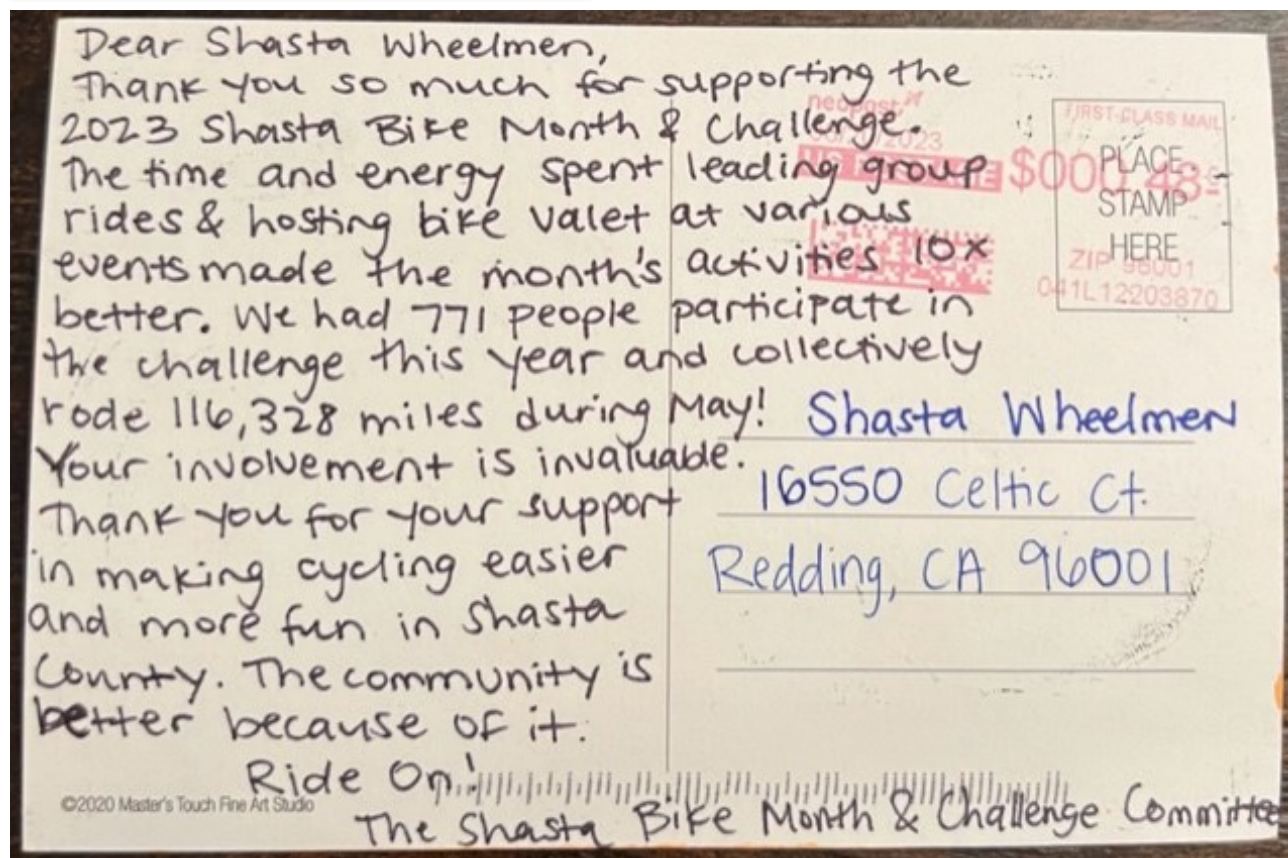 Dear Shasta Wheelmen,
Thank you so much for supporting the
2023 Shasta Bike Month & Challenge.
The time and energy spent leading group
rides & hosting bike valet at various
events made the month's activities 10x
better. We had 771 people participate in
the challenge this year and collectively
rode 116,328 miles during May!
Your involvement is invaluable.
Thank you for your support
in making cycling easier
and more fun in Shasta
County. The community is
better because of it.
Ride On!
The Shasta Bike Month & Challenge Committee
©2020 Master's Touch Fine Art Studio
neopost
2023
FIRST-CLASS MAIL
PLACE
STAMP
HERE
ZIP 96001
041L12203870
Shasta Wheelmen
16550 Celtic Ct.
Redding, CA 96001